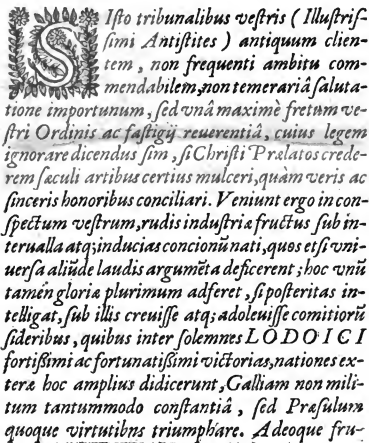 SIsto tribunalibus vestris ( Illustris-
simi Antistites ) antiquum clien-
tem , non frequenti ambitu com-
mendabilem, non temerariâ saluta-
tione importunum, sed vnâ maximè fretum ve-
stri Ordinis ac fastigij reuerentiâ, cuius legem
ignorare dicendus sim, si Christi Prælatos crede-
rem sæculi artibus certius mulceri, quàm veris ac
sinceris honoribus conciliari. Veniunt ergo in con-
spectum vestrum, rudis industriæ fructus sub in-
terualla atq; inducias concionū nati, quos etsi vni-
uersa aliūde laudis argumēta deficerent ; hoc vnū
tamén gloriæ plurimum adferet, si posteritas in-
telligat, sub illis creuisse atq; adoleuisse comitiorū
sideribus, quibus inter solemnes LODOICI
fortissimi ac fortunatissimi victorias, nationes ex-
teræ hoc amplius didicerunt, Galliam non mili-
tum tantummodo constantiâ, sed Præsulum
quoque virtutibns triumphare. Adeoque fru-